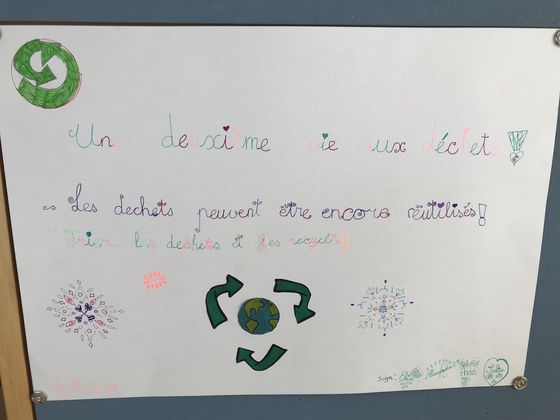 Une deuxième vie aux déchets !
Les dechets peuvent être encore réutilisés !
Trier les dechets et les recycler !
sign: